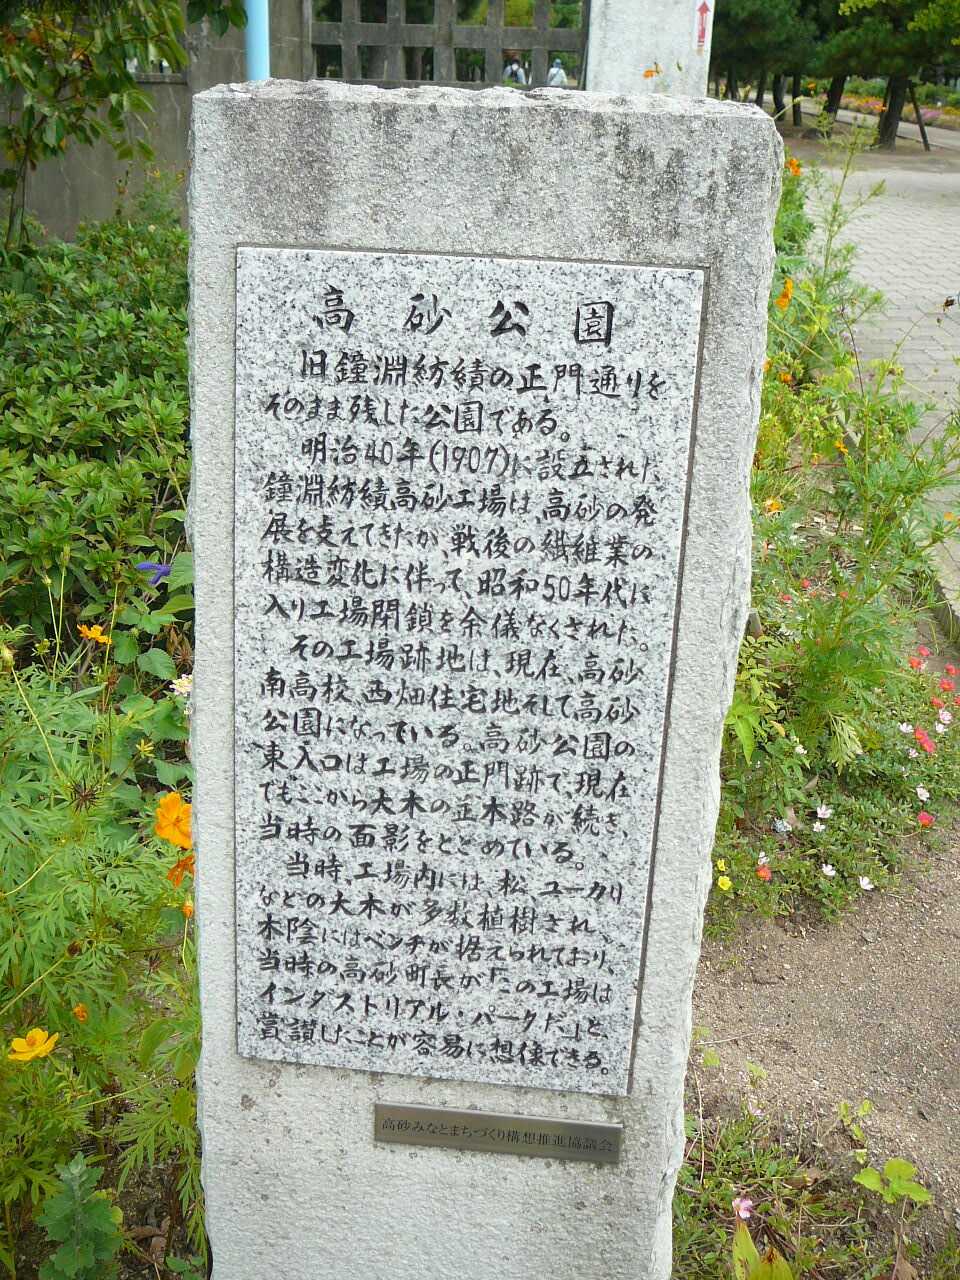 高砂公園
旧鐘淵紡績の正門通りを
そのまま残した公園である。
明治40年(1907)に設立された
鐘淵紡績高砂工場は、高砂の発
展を支えてきたが、戦後の繊維業の
構造変化に伴って、昭和50年代に
入り工場閉鎖を余儀なくされた。
その工場跡地は、現在、高砂
南高校、西畑住宅地そして高砂
公園になっている。高砂公園の
東入口は工場の正門跡で、現在
でもここから大木の並木路が続き、
当時の面影をとどめている。
当時、工場内には、松、ユーカリ
などの大木が多数植樹され、
木陰にはベンチが据えられており、
当時の高砂町長が「この工場は
インダストリアル・パークだ」と、
賞讃したことが容易に想像できる。
高砂みなとまちづくり構想推進協議会